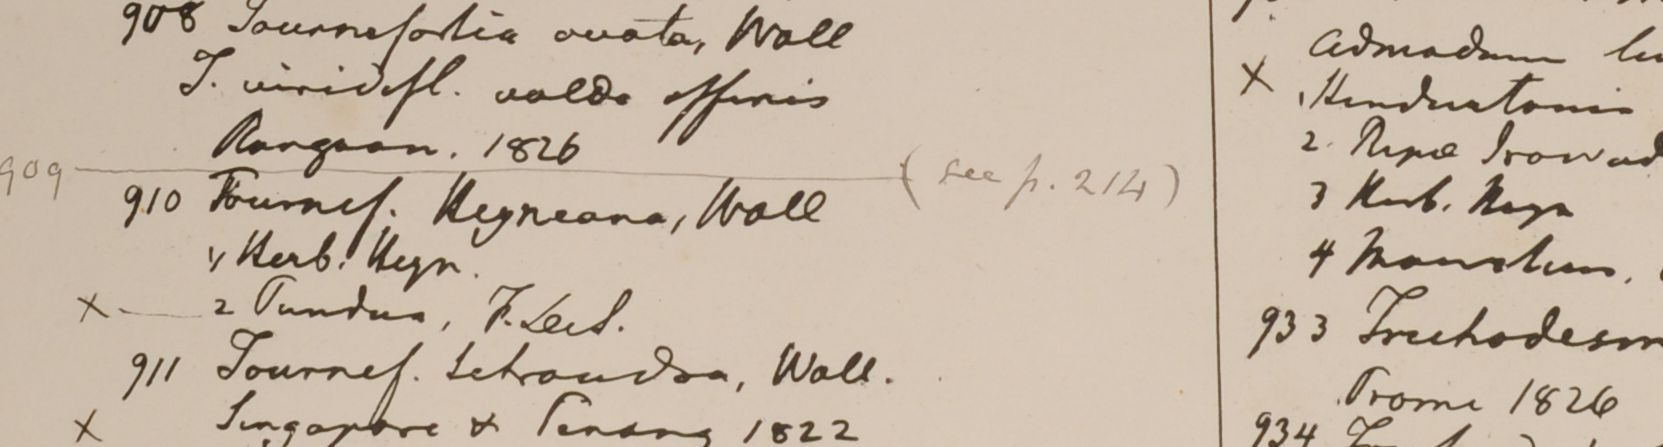 908 Tournefortia ovata, Wall
T. viridifl. valde affinis
Rangoon. 1826
909 (see p. 214)
910 Tournef. Heyneana, Wall
1, Herb. Heyn.
X 2 Pundua, F. De S.
911 Tournef. tetrandra, Wall.
X Singapore & Penang 1822
admodum
X 1 Hindustania
2. Ripae Irawad
3 Herb. Heyn
4
933 Trichodesm
Prome 1826
934